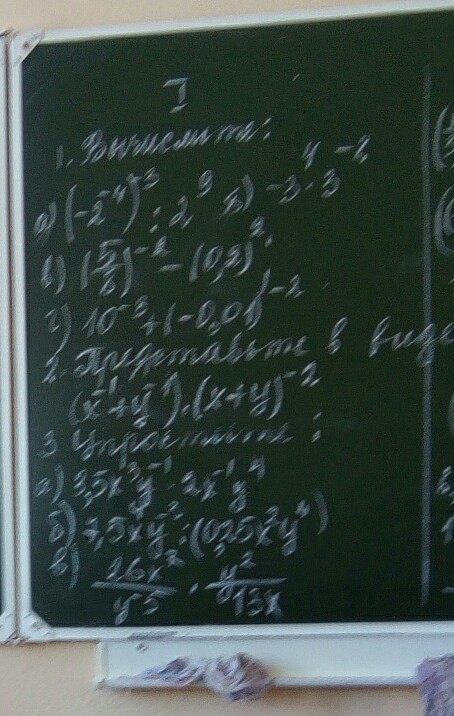 I
1. Вычислите:
а) (-2⁻⁴)⁻³ : 2⁹ б) -3⁴ · 3⁻²
в) (5/6)⁻² - (0,2)²
г) 10⁻³ + (-0,01)⁻²
2. Представьте в виде
(x⁻¹+y⁻¹) · (x+y)⁻²
3 Упростите:
а) 3,5x³y⁻¹ · 2x⁻¹y⁴
б) 7,5xy⁻² : (0,25x²y⁴)
в) 26x²/y⁵ · y²/13x